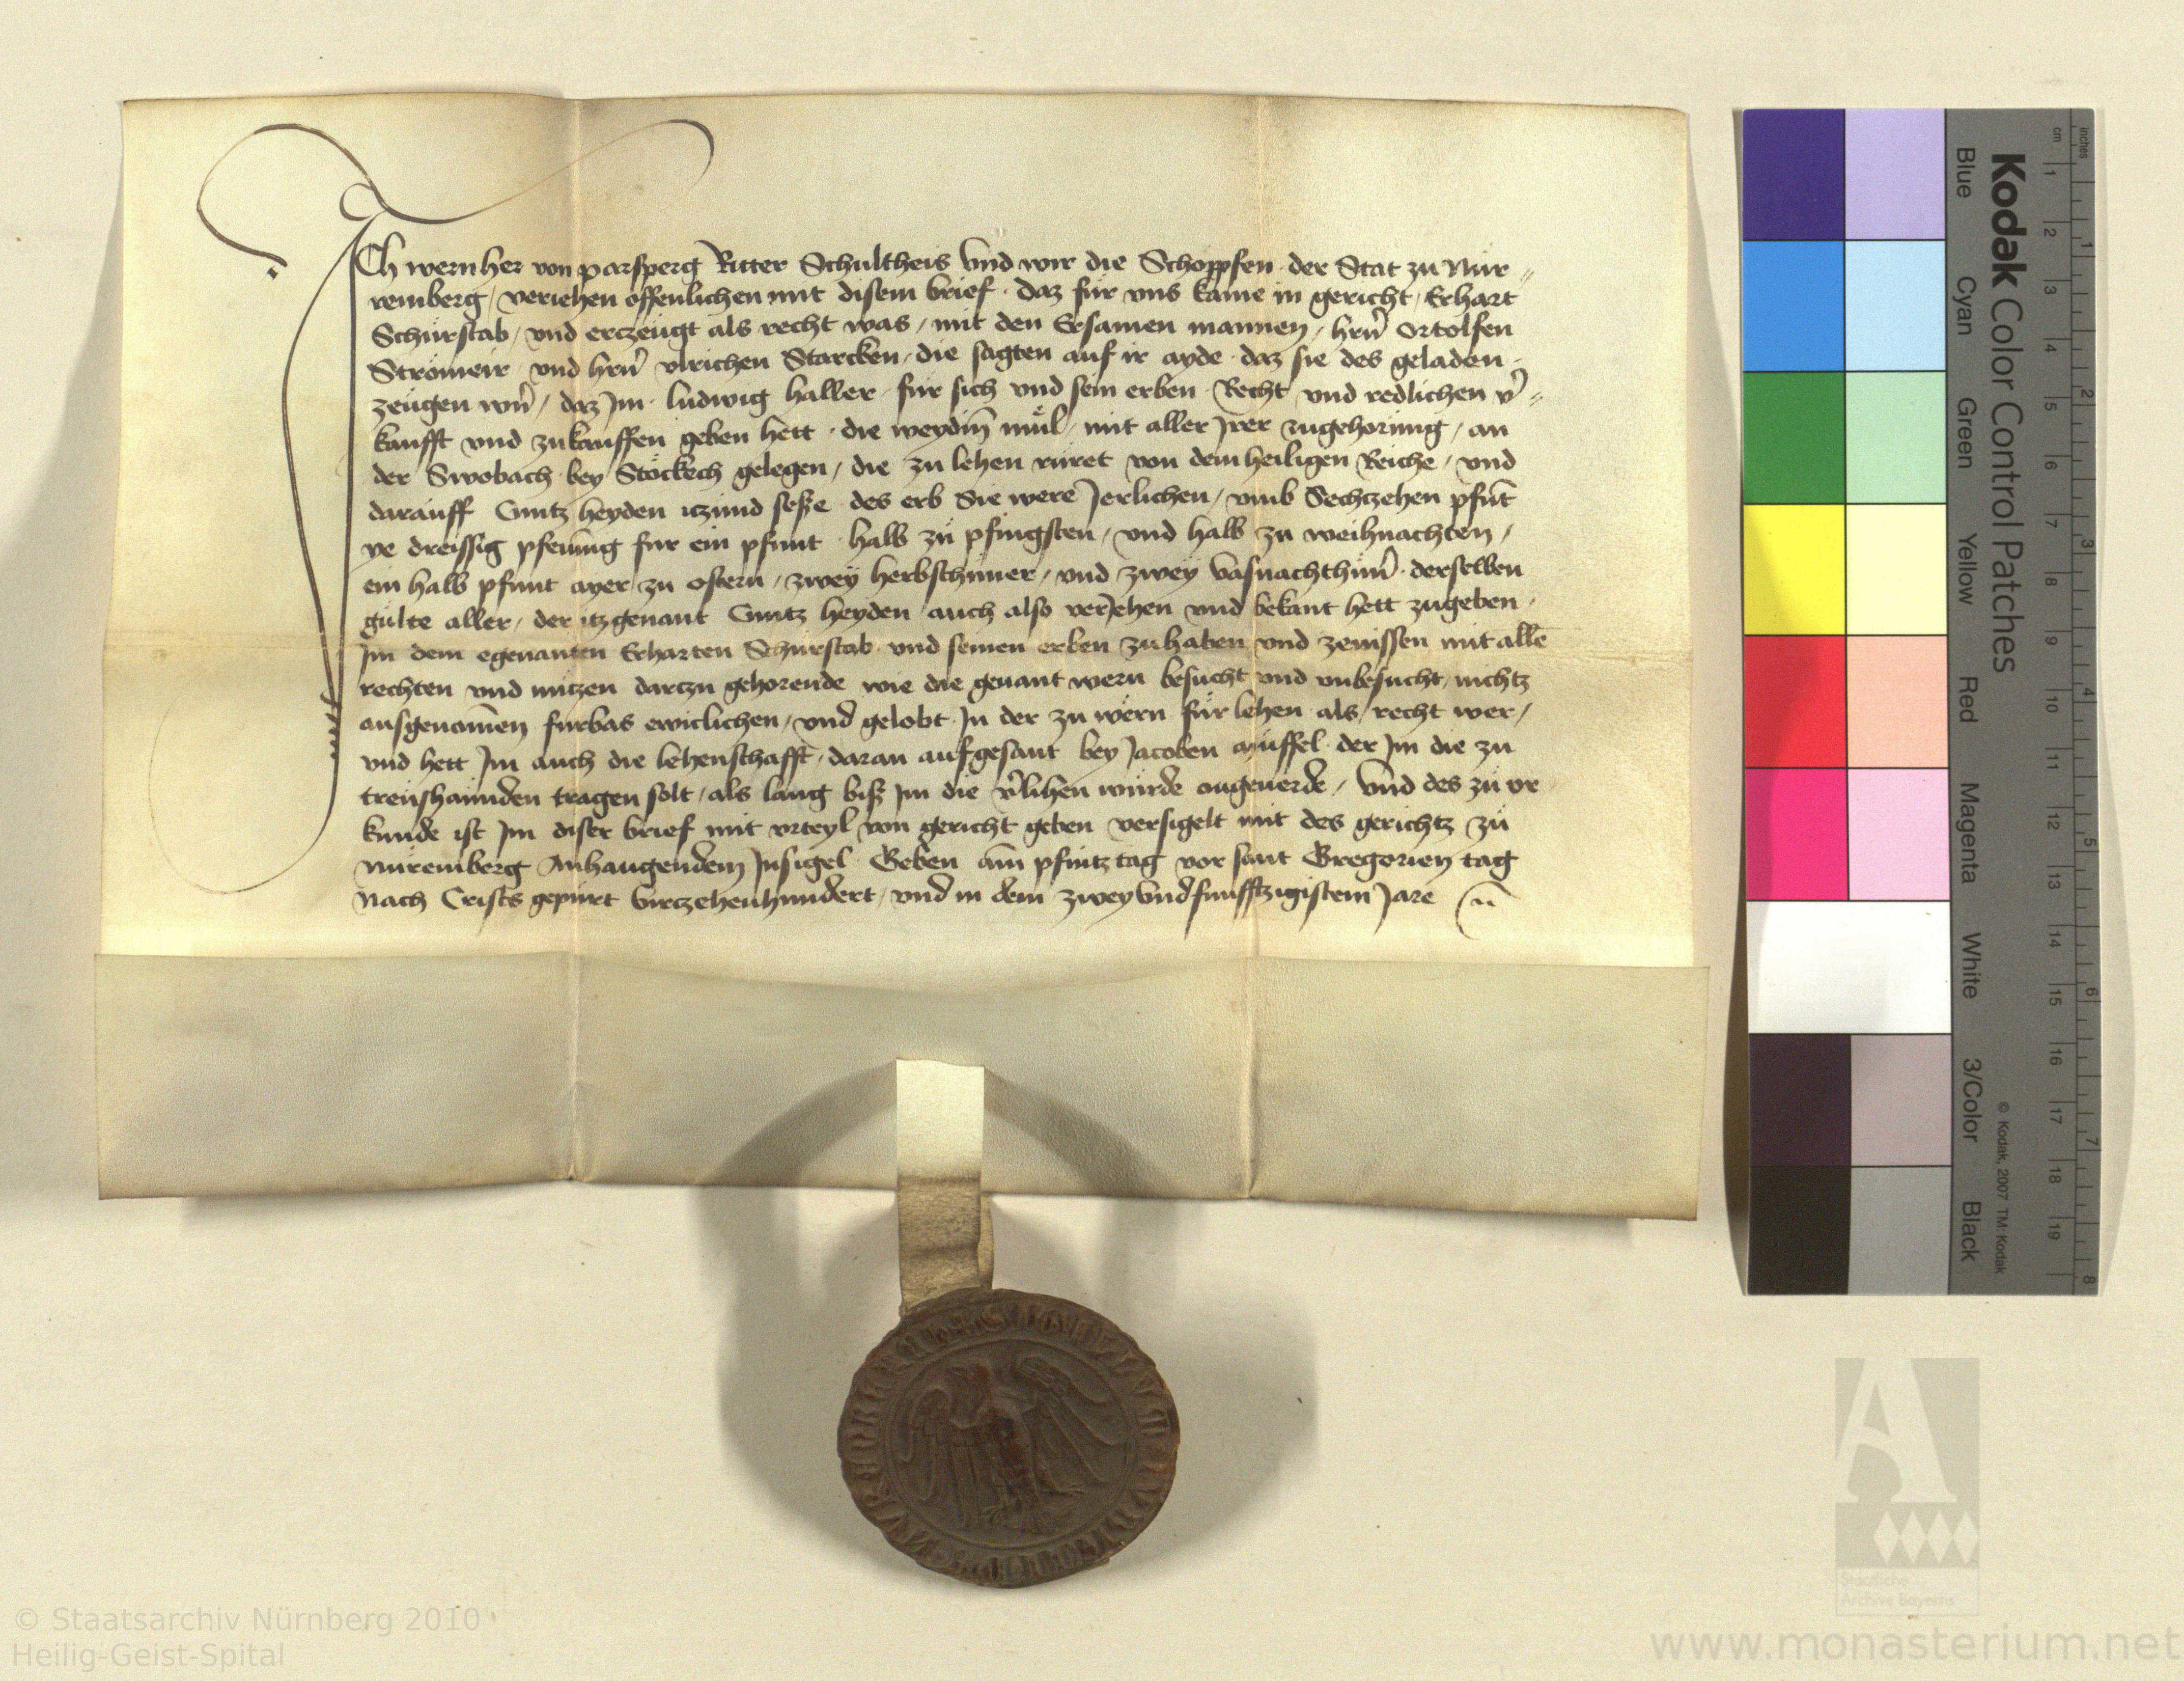 Ich wernher von parsperg Ritter Schultheis Vnd wir die Schoppfen der Stat zu Nür„
remberg / veriehen offenlichen mit disem brief · daz für vns kame in gericht / Erhart
Schürstab / vnd erczeugt als recht was / mit den Ersamen mannen / hrn̄ Ortolfen
Strömeir · vnd hrn̄ vlrichen Starcken / die sagten auf ir ayde · daz sie des geladen
zeugen wrn̄ / daz Im · ludwig haller · für sich vnd sein erben · Recht vnd redlichen v̄ „
kaufft vnd zukauffen geben hett · die weydin̄ mül / mit aller Irer zugehorung / an
der Swobach · bey Stöckech gelegen / die zu lehen rüret von dem heiligen Reiche / vnd
darauff Cuntz heyden iczund seße des erb Sie were Jerlichen / vmb Sechczehen pfūt
ye dreissig pfennīg für ein pfunt · halb zu pfingsten / vnd halb zu weihnachten /
ein halb pfunt ayer zu ostern / zwey herbsthüner / vnd zwey vasnachthün̄ · derselben
gülte aller / der itzgenant Cuntz heyden auch also veriehen vnd bekant hett zugeben ·
Im dem egenanten Erharten Schürstab · vnd seinen erben zu haben vnd zenissen mit allē
rechten vnd nützen darczu gehorende wie die genant wern besucht vnd vnbesucht / nichtz
ausgenomēn fürbas ewiclichen / vnd gelobt In der zu wern für lehen als / recht wer /
vnd hett Im auch die lehenschafft / daran aufgesant bey Jacoben müffel · der Im die zu
trewshannden tragen solt / als lang biß Im die v̄lihen würde ongeuerde / Vnd des zu vr
kunde ist Im diser brief mit vrteyl von gericht geben versigelt mit des gerichtz zu
Nüremberg Anhangendem Insigel · Geben am pfintztag vor sant Gregorien tag
Nach Crists gepürt virczehenhundert / vnd in dem zweyvndfunfftzigistem Jare
Kodak Color Control Patches
Blue Cyan Green Yellow Red Magenta White 3/Color Black
© Kodak, 2007 TM: Kodak
cm 1 2 3 4 5 6 7 8 9 10 11 12 13 14 15 16 17 18 19
inches 1 2 3 4 5 6 7 8
© Staatsarchiv Nürnberg 2010
Heilig-Geist-Spital
Staatliche
Archive Bayerns
www.monasterium.net